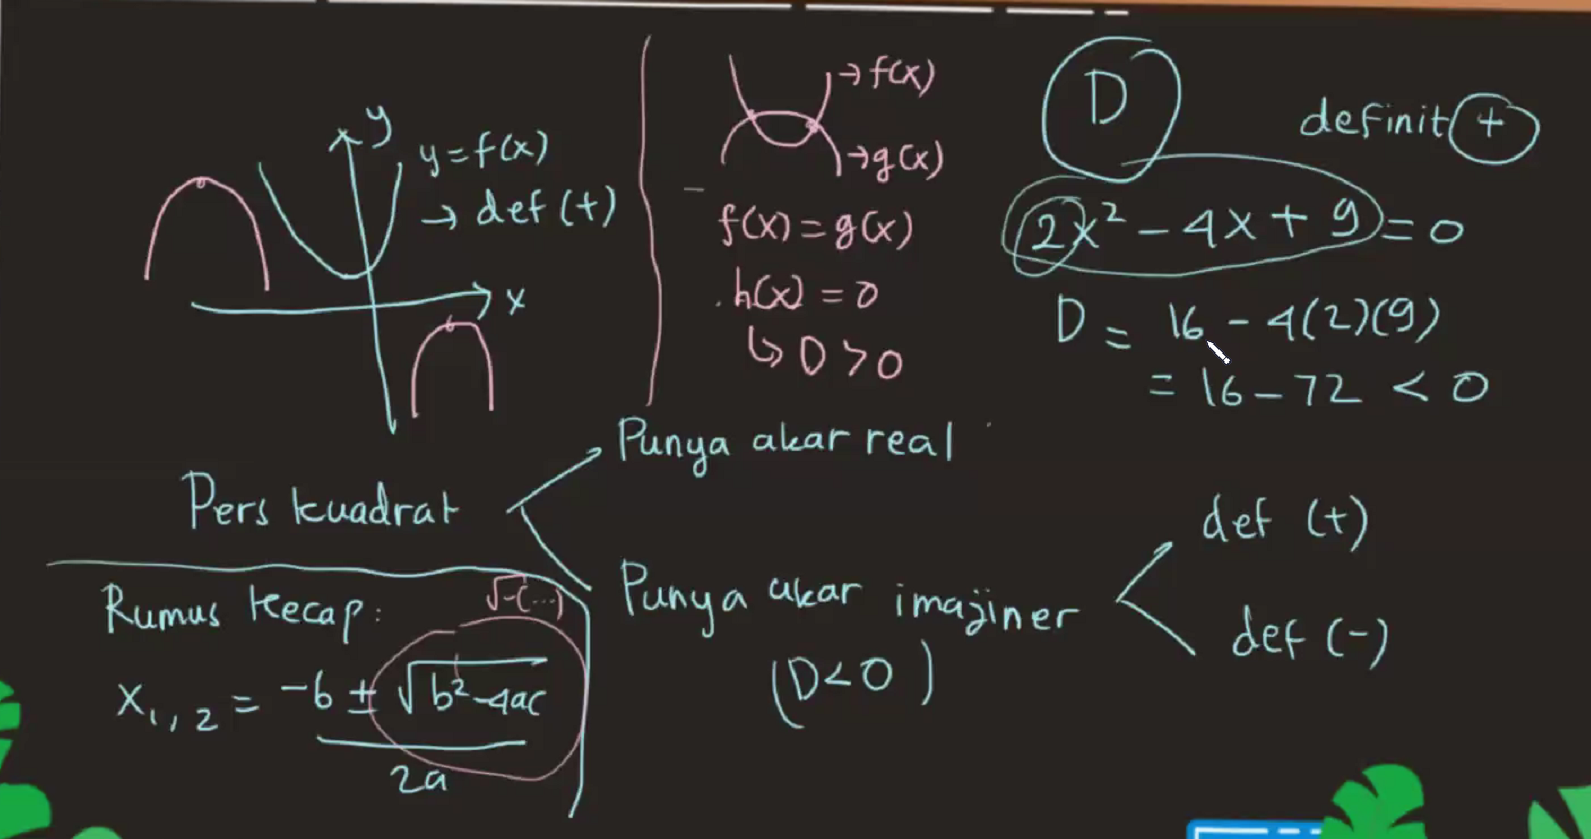 y
y=f(x)
→ def (+)
x
→ f(x)
→ g(x)
f(x) = g(x)
h(x) = 0
↳ D > 0
D
definit +
2x² - 4x + 9 = 0
D = 16 - 4(2)(9)
= 16 - 72 < 0
Pers kuadrat
Punya akar real
Punya akar imajiner
(D<0)
def (+)
def (-)
Rumus Kecap:
√-(...)
x₁,₂ = -b ± √b²-4ac
2a